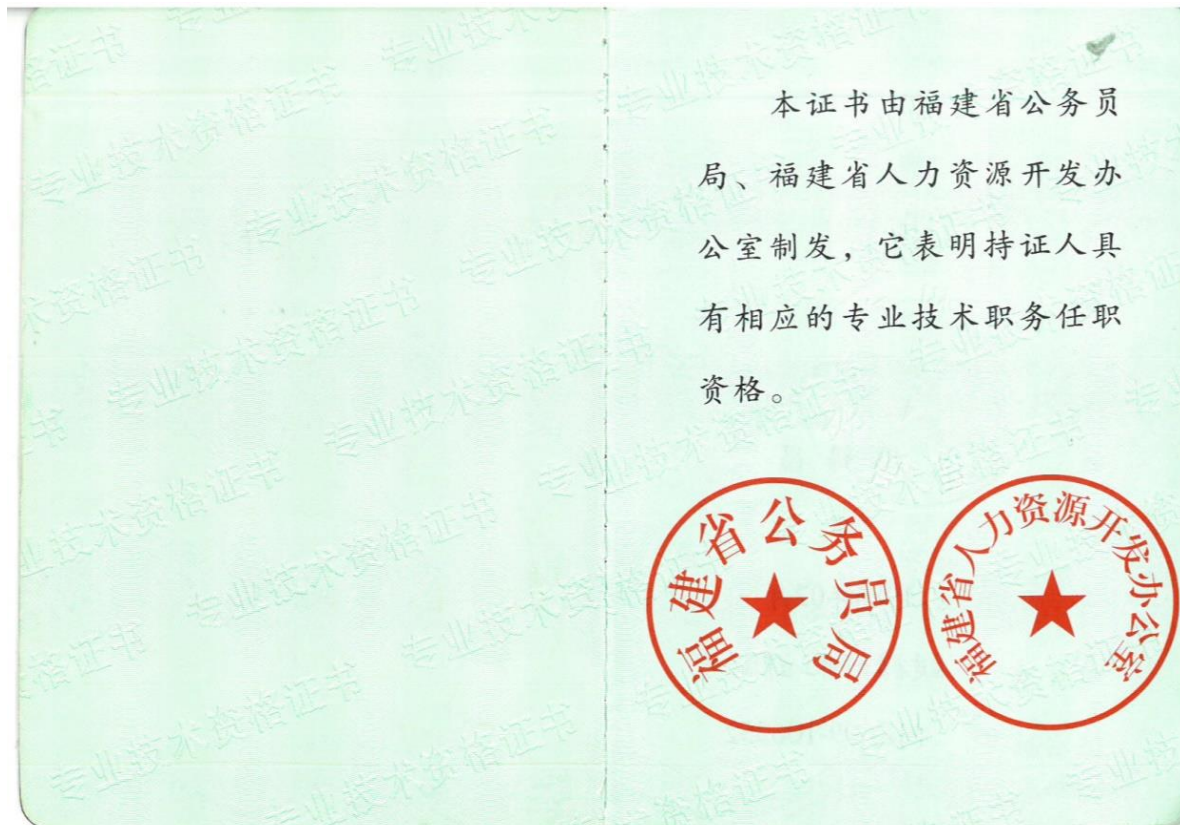 本证书由福建省公务员
局、福建省人力资源开发办
公室制发，它表明持证人具
有相应的专业技术职务任职
资格。
福建省公务员局
福建省人力资源开发办公室
专业技术资格证书